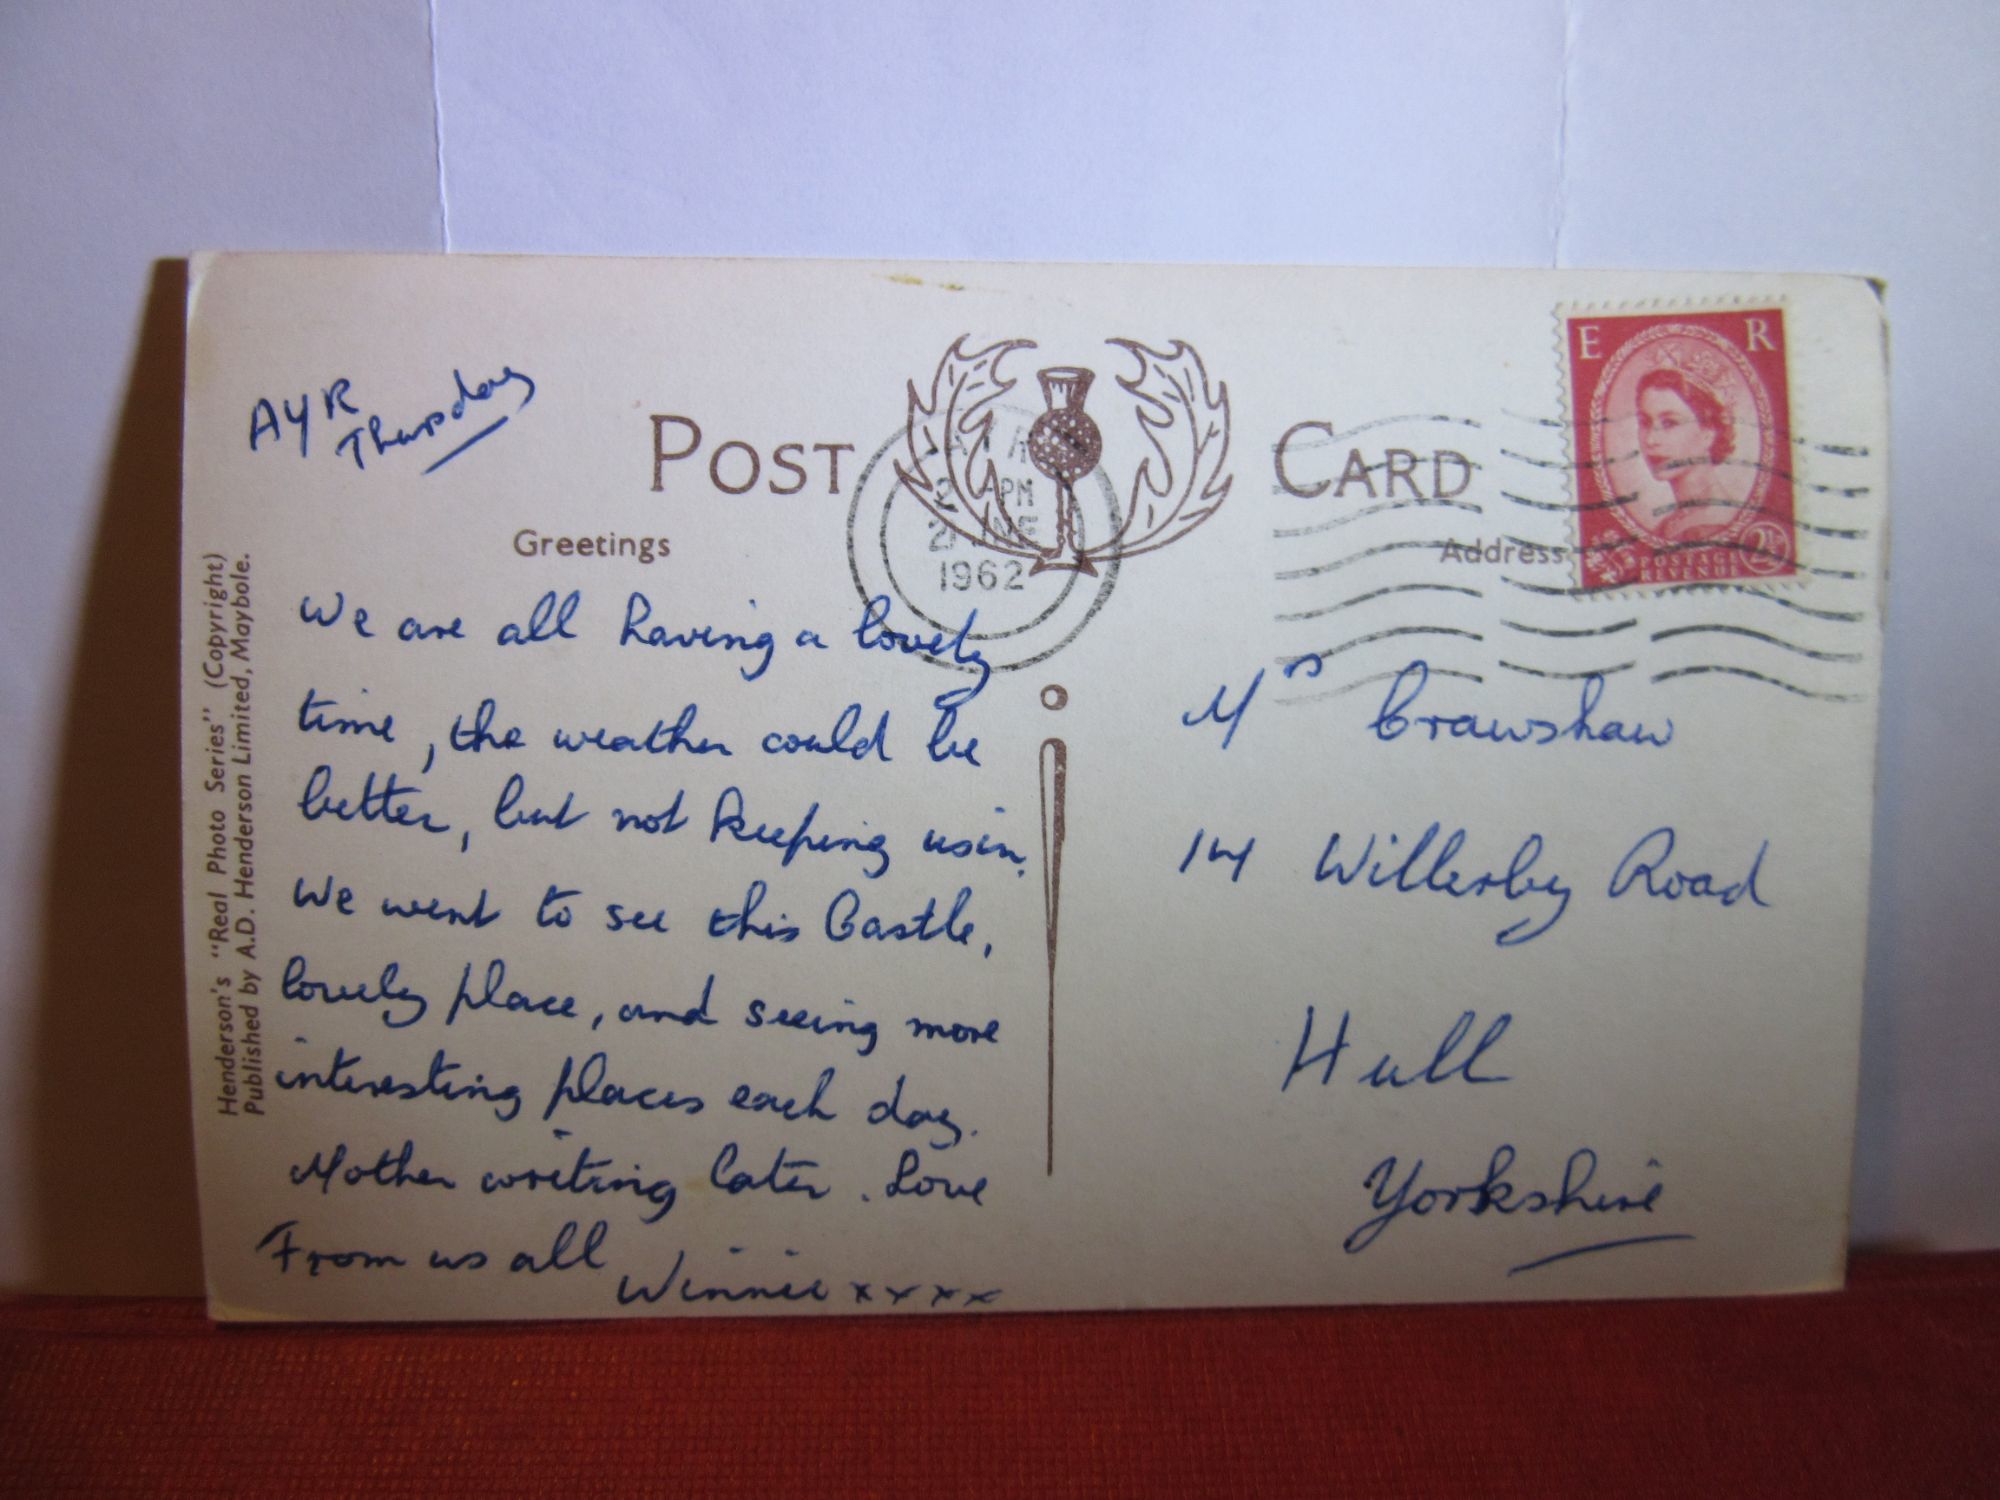 AYR
Thursday
POST CARD
Greetings
Address
We are all having a lovely
time, the weather could be
better, but not keeping us in.
We went to see this Castle,
lovely place, and seeing more
interesting places each day.
Mother writing later. Love
From us all
Winnie xxxx
Mrs Crawshaw
14 Willerby Road
Hull
Yorkshire
Henderson's "Real Photo Series" (Copyright)
Published by A.D. Henderson Limited, Maybole.
E R
POSTAGE 2½
REVENUE
AYR
PM
21 JNE
1962